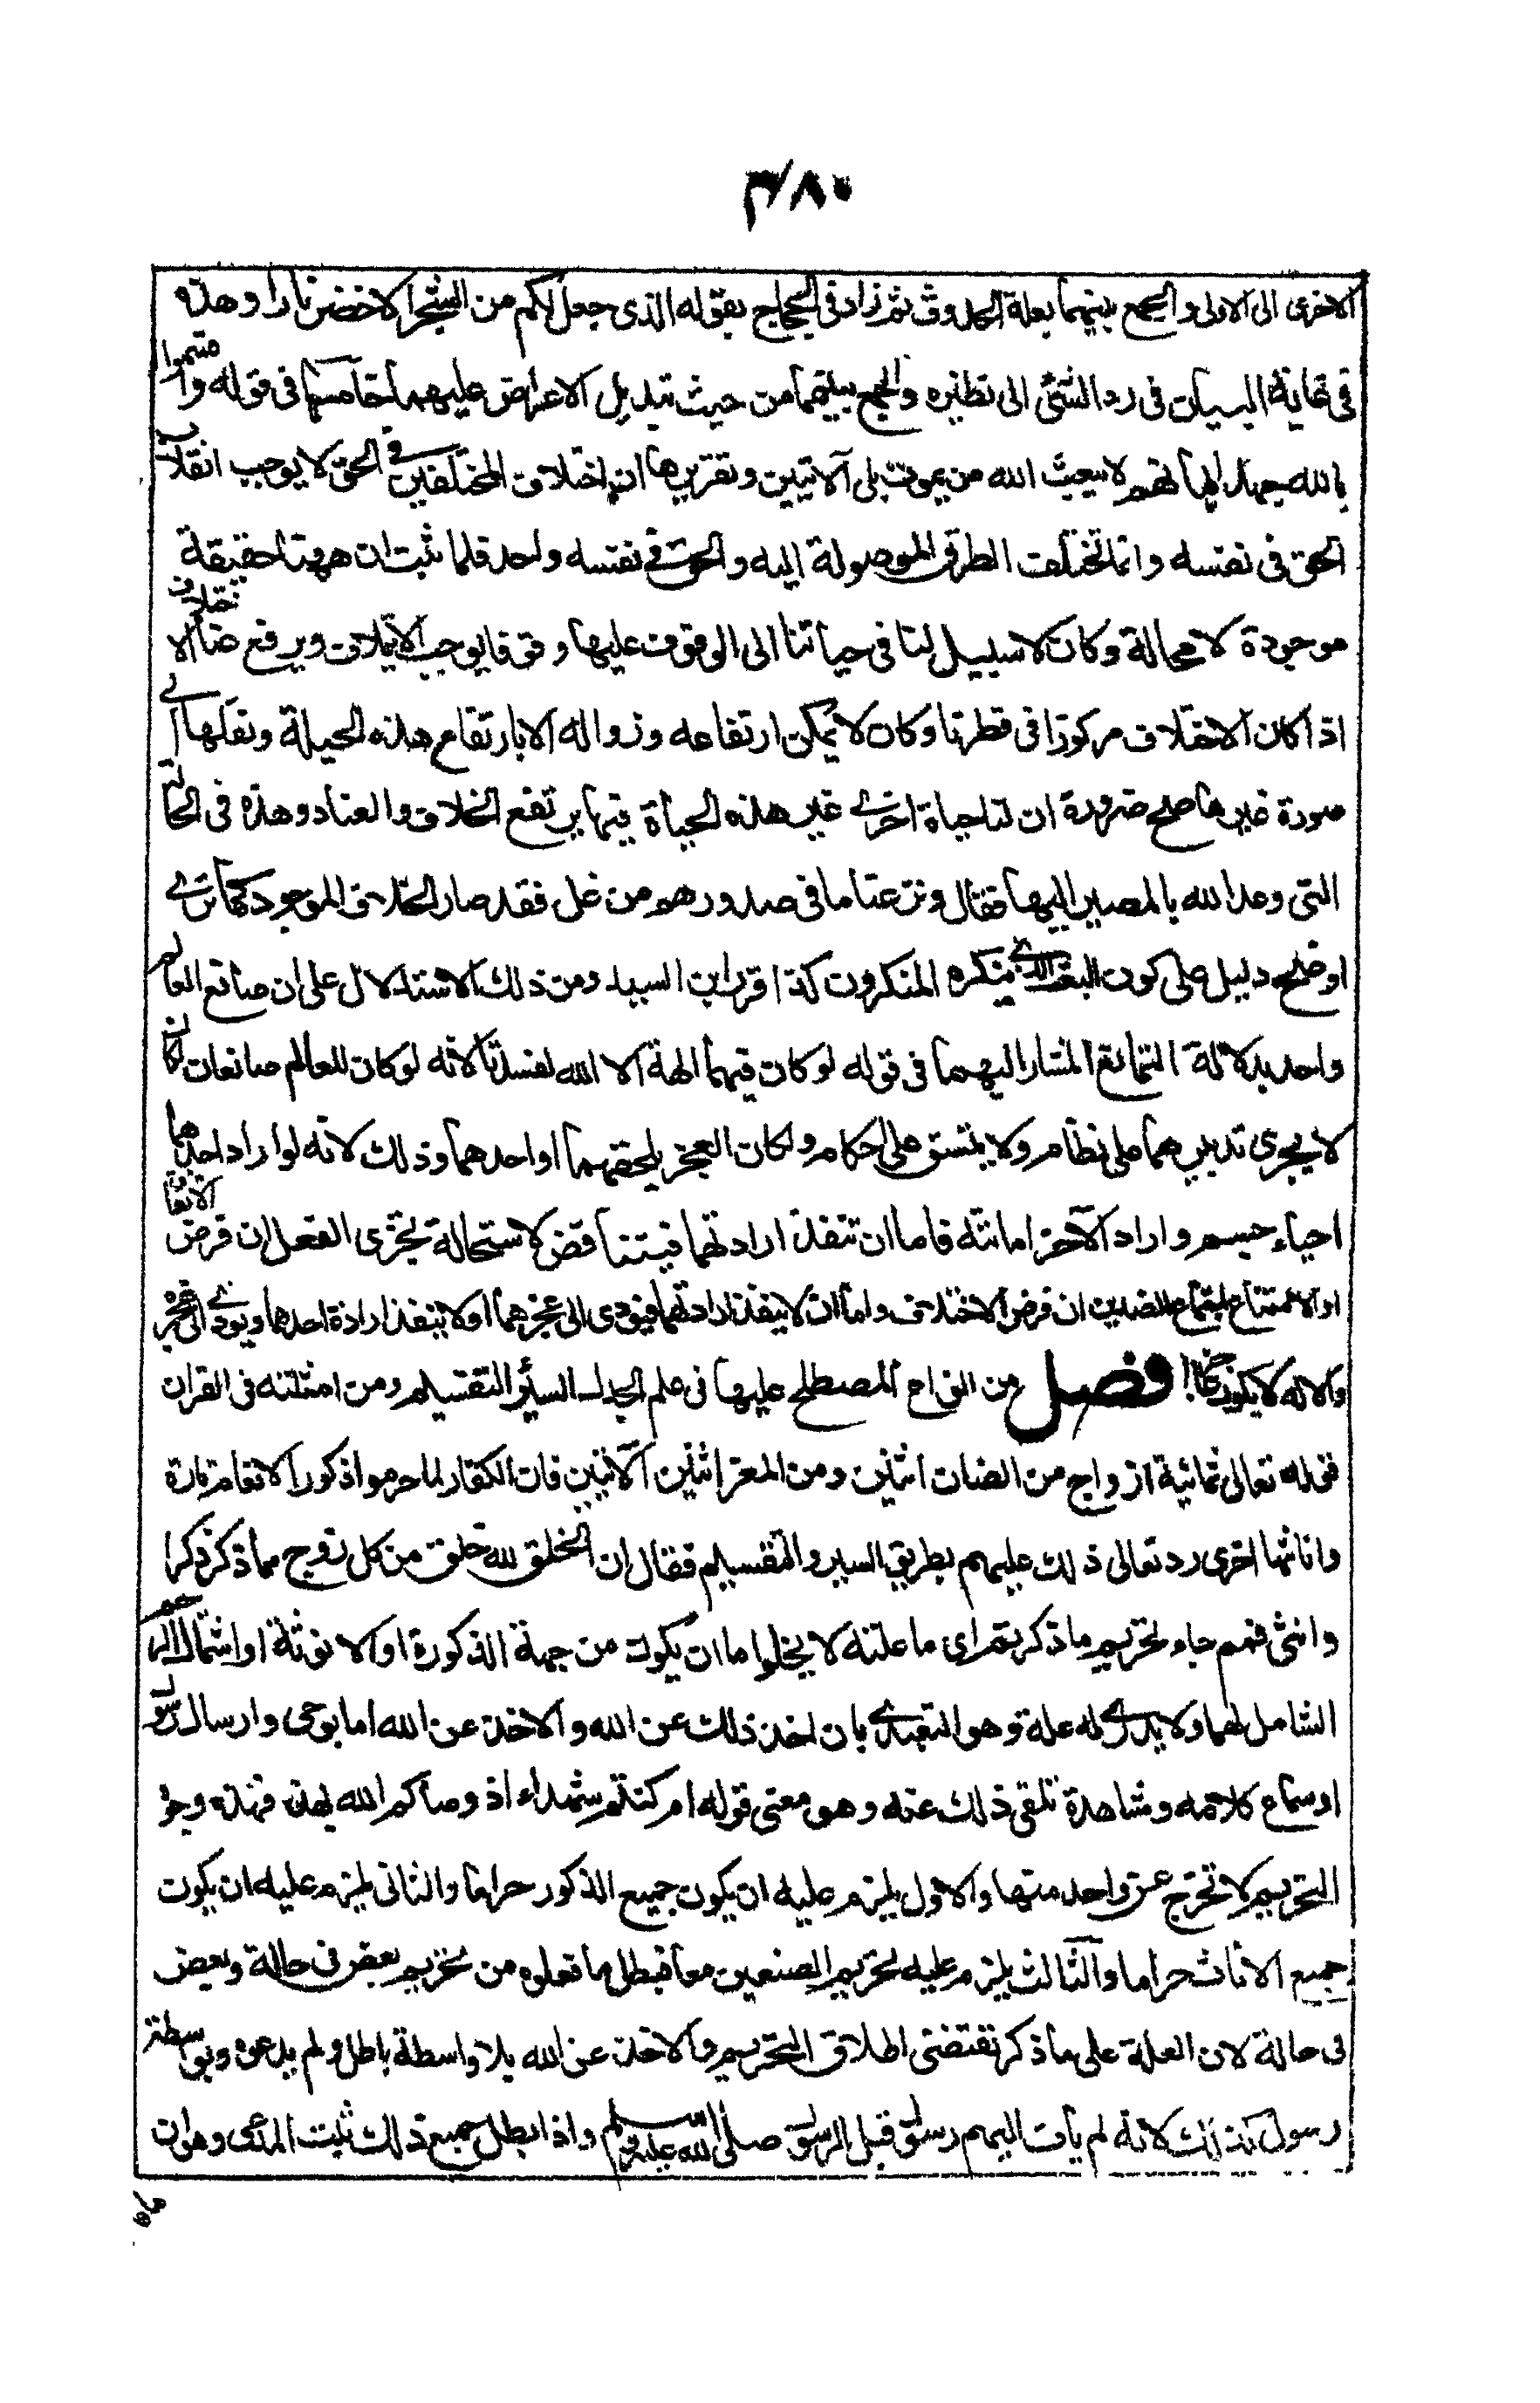 ٣٨٠
الاخرى الى الاولى والجمع بينهما بعلة الحدوث ثم زاد فى الحجاج بقوله الذى جعل لكم من الشجر الاخضر نارا وهذه
فى غاية البيان فى رد الشئ الى نظيره والجمع بينهما من حيث تبديل الاعراض عليهما خامسها فى قوله واقسموا
بالله جهد ايمانهم لا يبعث الله من يموت بلى الآيتين وتقريرها ان اختلاف المختلفين فى الحق لا يوجب انقلاب
الحق فى نفسه وانما تختلف الطرق الموصولة اليه والحق فى نفسه واحد فلما ثبت ان ههنا حقيقة
موجودة لا محالة وكان لا سبيل لنا فى حياتنا الى الوقوف عليها وقوفا يوجب الايتلاف ويرفع عنا الاختلاف
اذ كان الاختلاف مركوزا فى فطرنا وكان لا يمكن ارتفاعه وزواله الا بارتفاع هذه الجبلة ونقلها الى
صورة غيرها صح ضرورة ان لنا حياة اخرى غير هذه الحياة فيها يرتفع الخلاف والعناد وهذه فى الحالة
التى وعد الله بالمصير اليها فقال ونزعنا ما فى صدورهم من غل فقد صار الخلاف الموجود كما ترى
اوضح دليل على كون البعث الذى ينكره المنكرون كذا قرر ابن السيد ومن ذلك الاستدلال على ان صانع العالم
واحد بدلالة التمانع المشار اليها فى قوله لو كان فيهما الهة الا الله لفسدتا لانه لو كان للعالم صانعان لكان
لا يجرى تدبيرهما على نظام ولا يتسق على احكام ولكان العجز يلحقهما او احدهما وذلك لانه لو اراد احدهما
احياء جسم واراد الآخر اماتته فاما ان تنفذ ارادتهما فيتناقض لاستحالة تجزى الفعل ان فرض الاتفاق
او الامتناع اجتماع الضدين ان فرض الاختلاف واما ان لا ينفذ ارادتهما فيؤدى الى عجزهما او لا ينفذ ارادة احدهما ويؤدى الى عجزه
والاله لا يكون عاجزا فصل من الانواع المصطلح عليها فى علم الجدل السبر التقسيم ومن امثلته فى القران
قوله تعالى ثمانية ازواج من الضان اثنين ومن المعز اثنين الآيتين فان الكفار لما حرموا ذكور الانعام تارة
واناثها اخرى رد تعالى ذلك عليهم بطريق السبر والتقسيم فقال ان الخلق لله خلق من كل زوج مما ذكر ذكرا
وانثى فمم جاء تحريم ما ذكرتم اى ما علته لا يخلوا ما ان يكون من جهة الذكورة او الانوثة او اشتمال الرحم
الشامل لهما او لا يدرى له علة وهو التعبدى بان اخذ ذلك عن الله والاخذ عن الله اما بوحى وارسال رسول
او سماع كلامه ومشاهدة تلقى ذلك عنه وهو معنى قوله ام كنتم شهداء اذ وصاكم الله بهذا فهذه وجوه
التحريم لا تخرج عن واحد منها والاول يلزم عليه ان يكون جميع الذكور حراما والثانى يلزم عليه ان يكون
جميع الاناث حراما والثالث يلزم عليه تحريم الصنفين معا فبطل ما فعلوه من تحريم بعض فى حالة وبعض
فى حالة لان العلة على ما ذكر تقتضى اطلاق التحريم والاخذ عن الله بلا واسطة باطل ولم يدعوه وبواسطة
رسول كذلك لانه لم يات اليهم رسول قبل الرسول صلى الله عليه وسلم واذا بطل جميع ذلك ثبت المدعى وهو ان